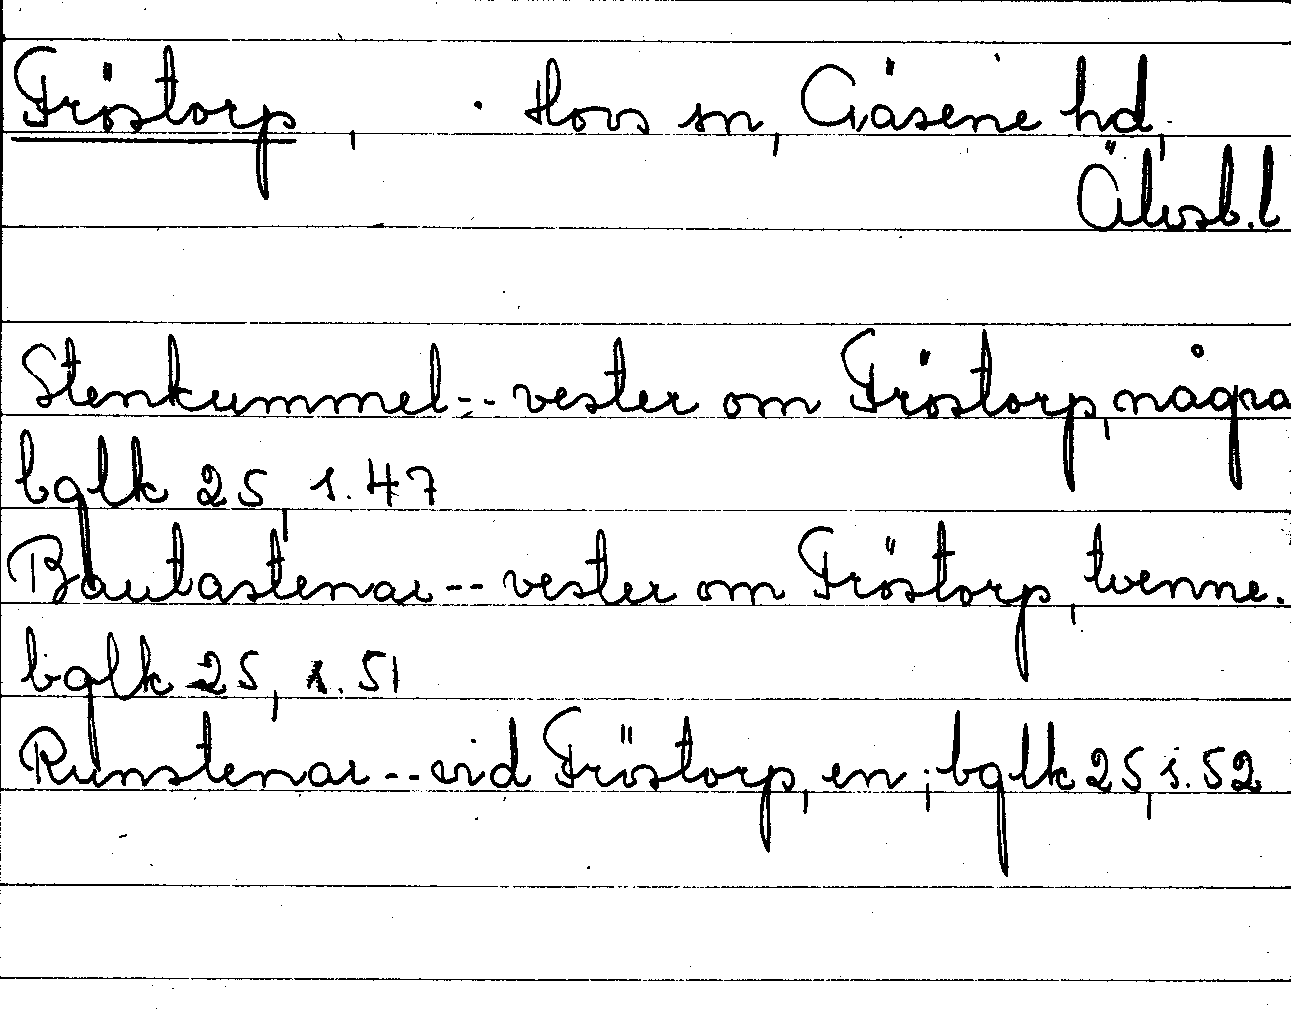 Fröstorp, Hovs sn, Gäsene hd,
Älvsb.l
Stenkummel-- vester om Fröstorp, några
bglk 25, s. 47
Bautastenar -- vester om Fröstorp, tvenne.
bglk 25, s. 51
Runstenar -- vid Fröstorp, en; bglk 25, s. 52